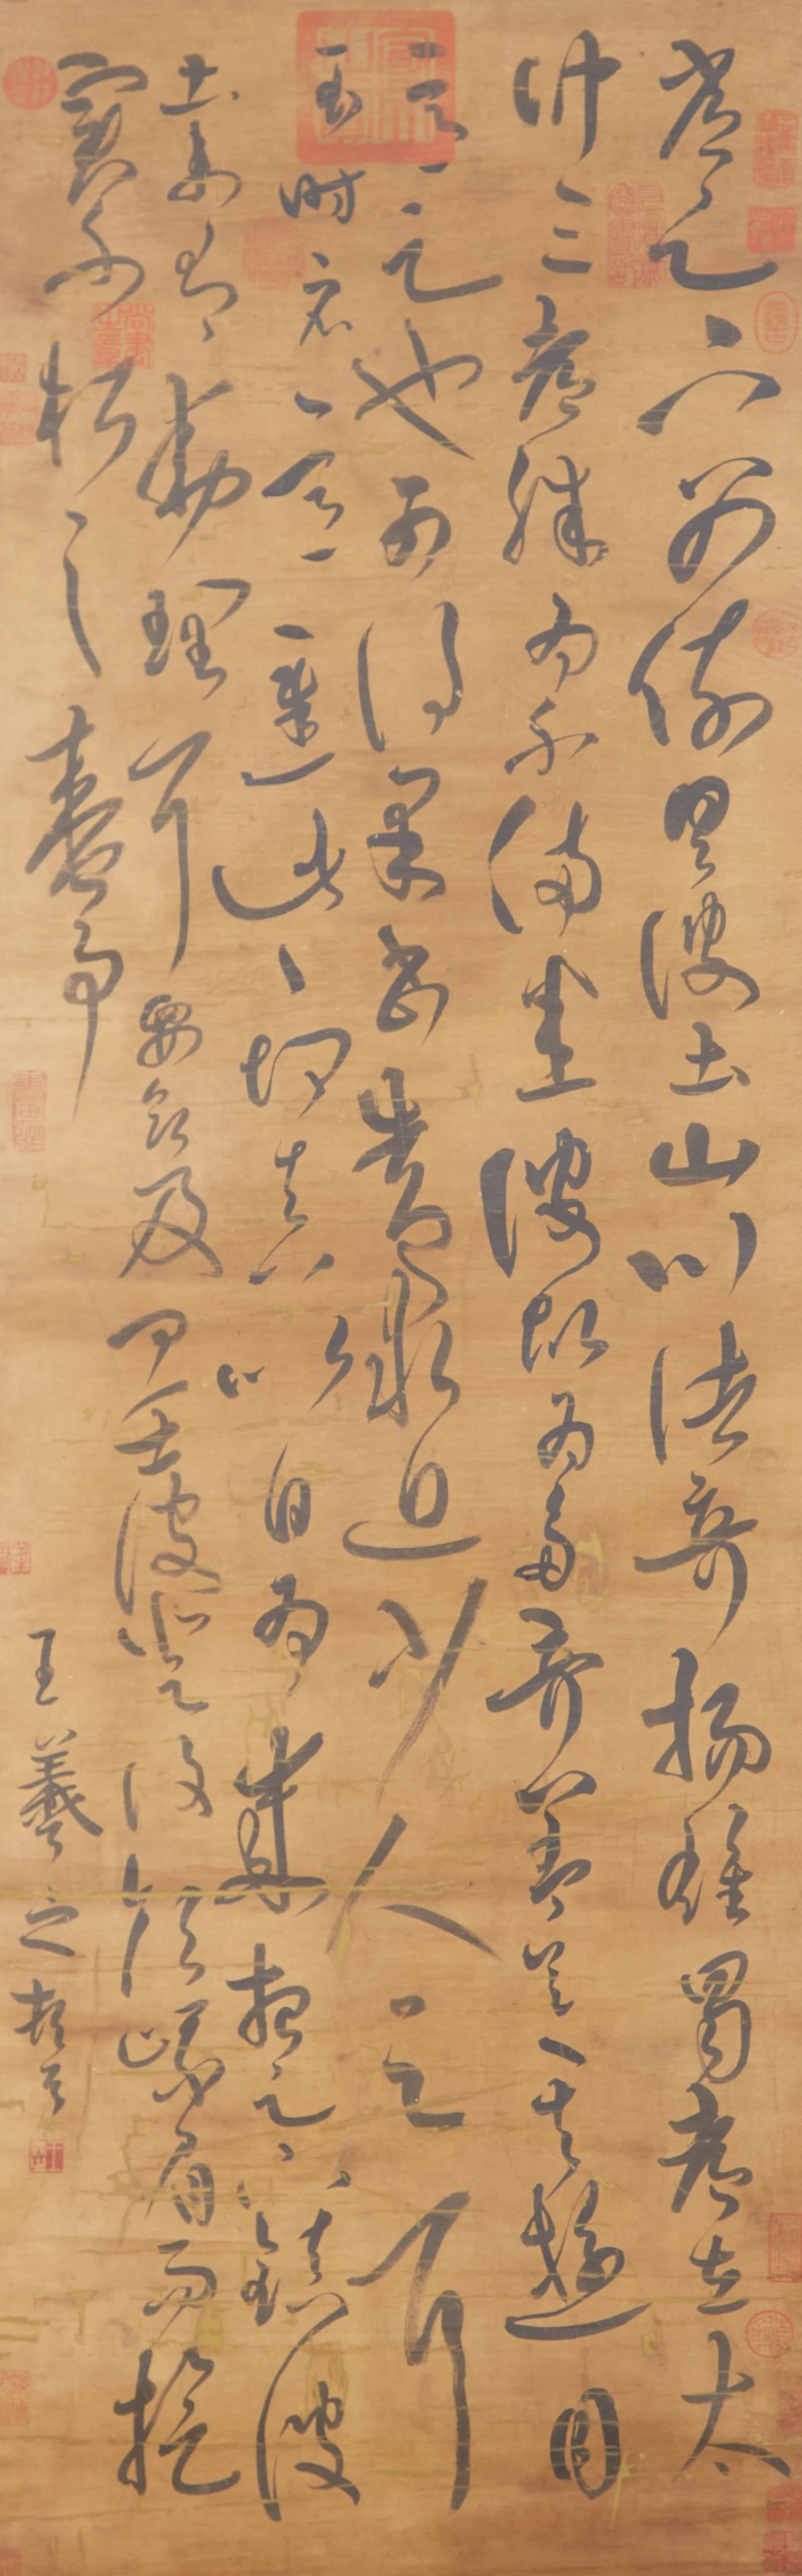 省足下別疏具彼土山川諸奇揚雄蜀都左太
沖三都殊為不備悉彼故為多奇益令其遊目
意足也可得果當告卿求迎少人足耳
至時示意遲此期真以日為歲想足下鎮彼
土未有動理耳要欲及卿在彼登汶領峨眉而旋
實不朽之盛事
王羲之頓首